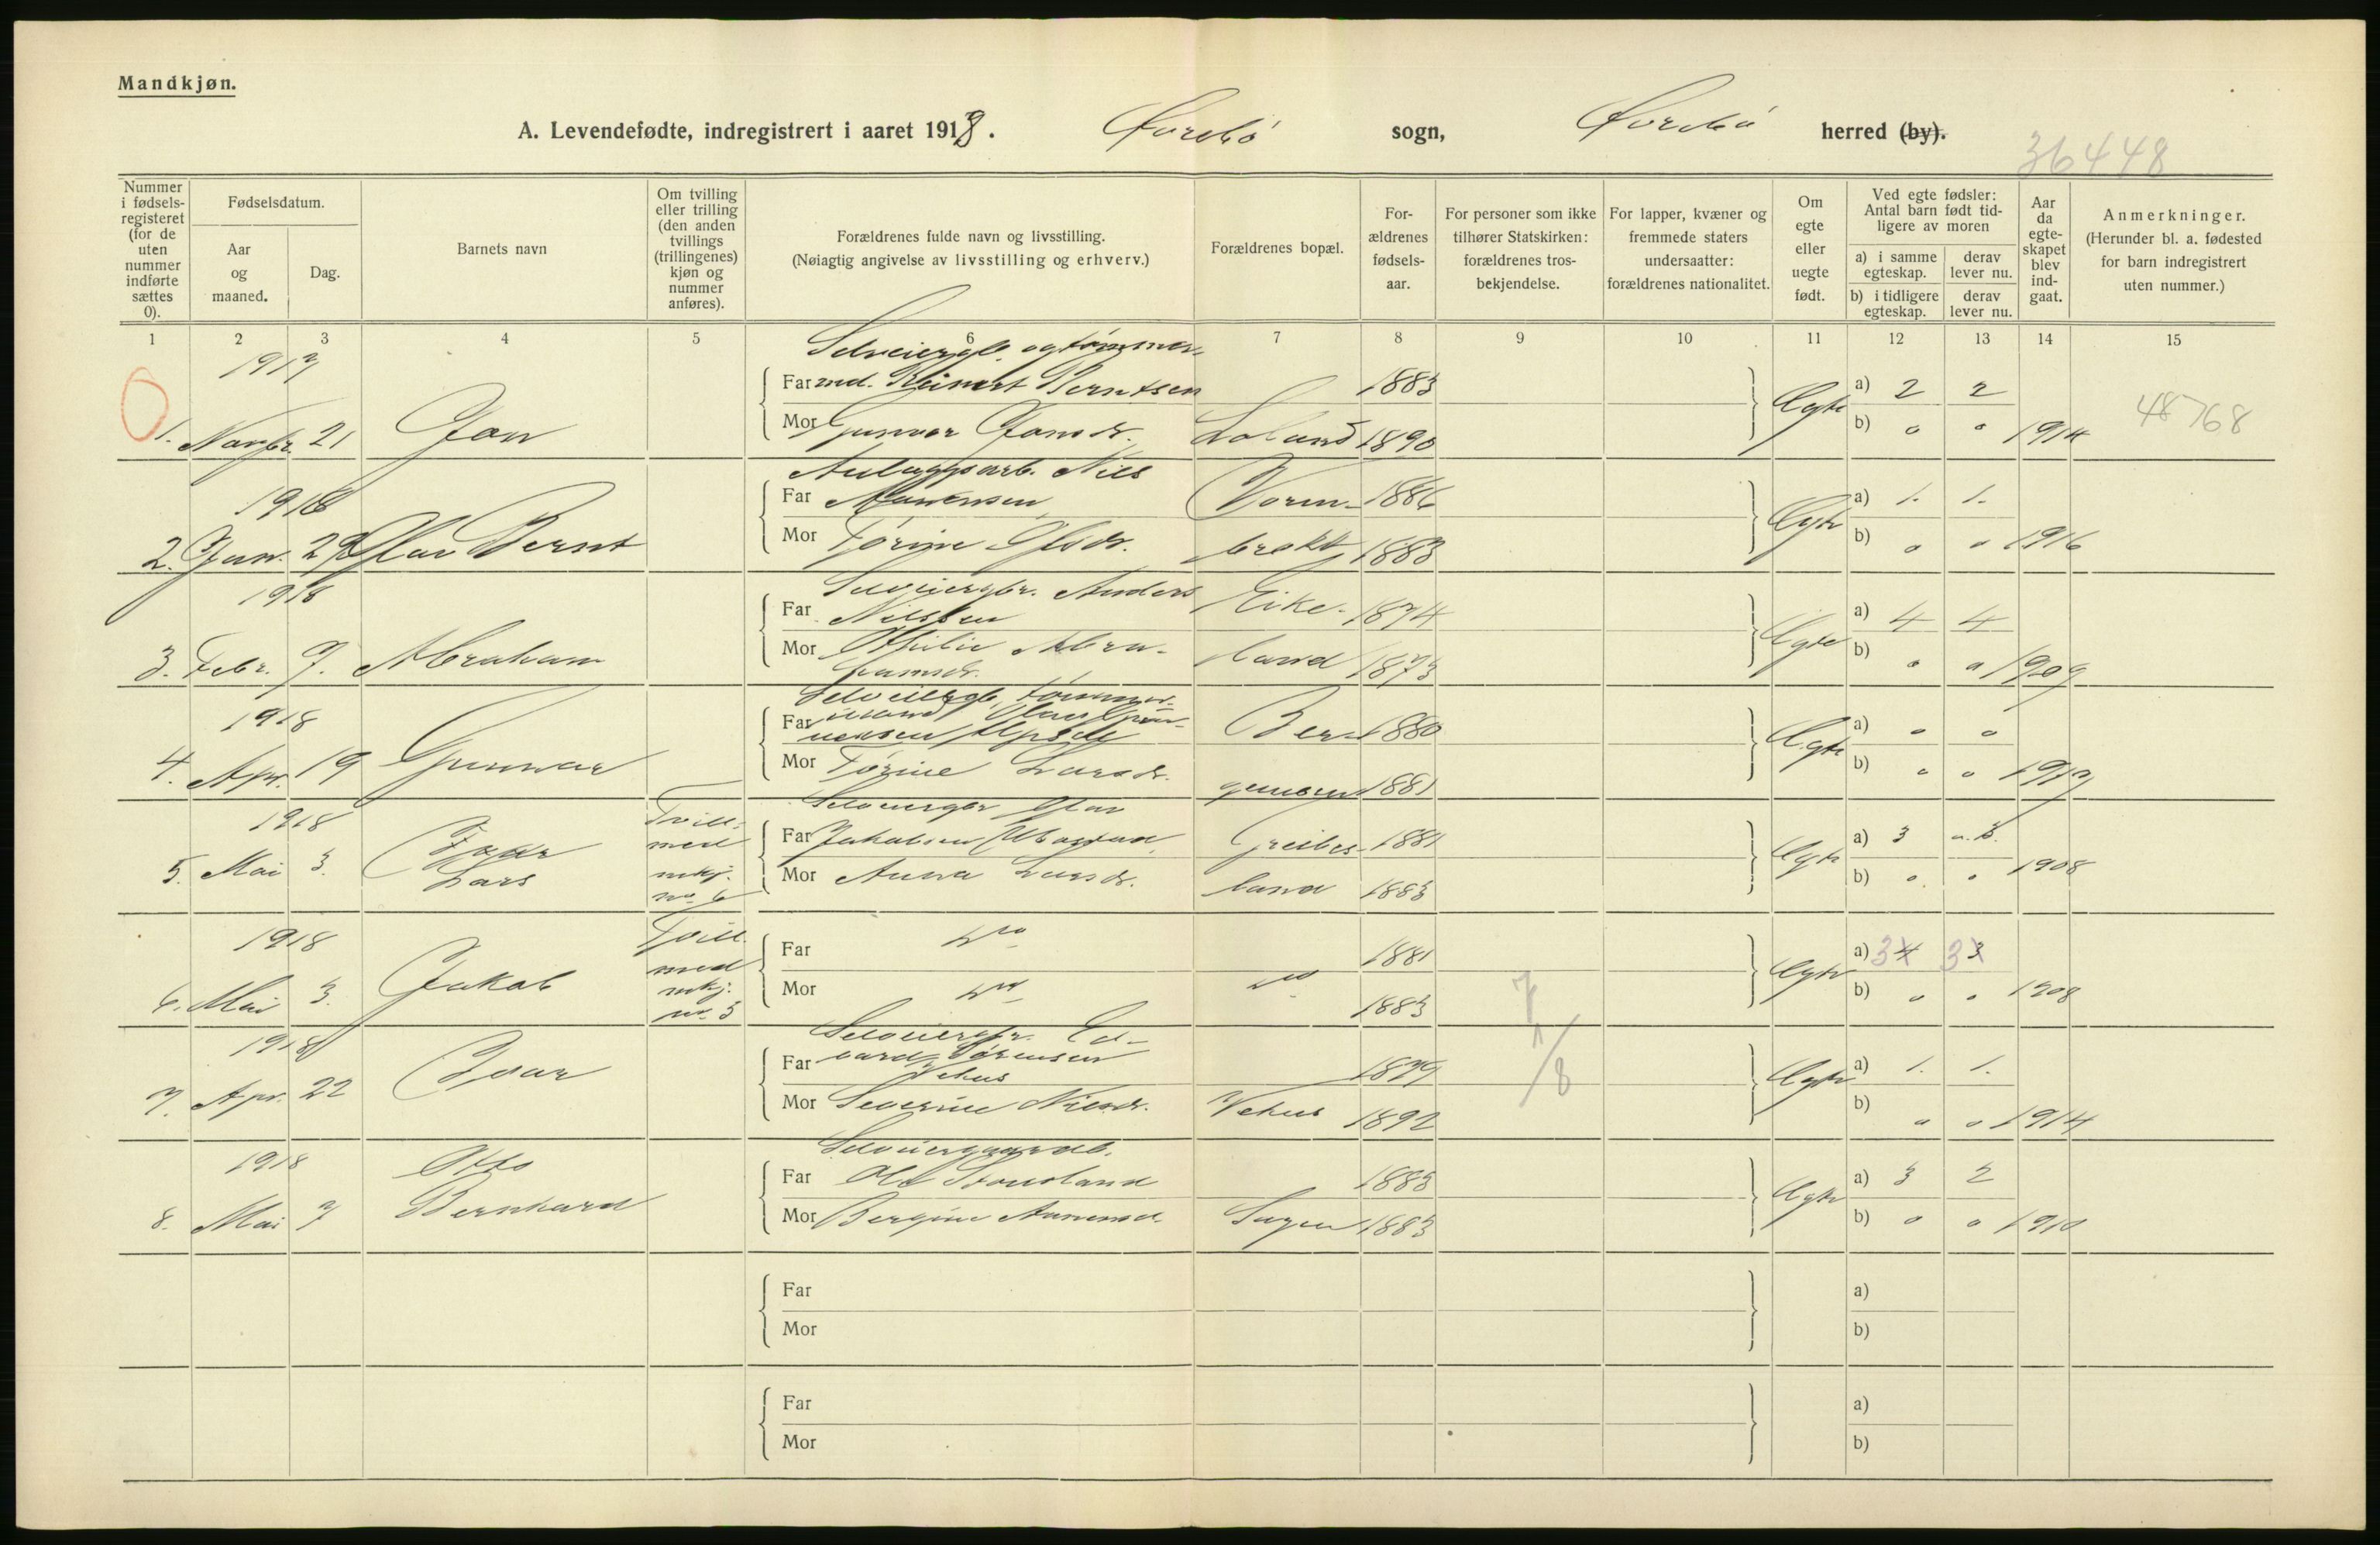 Mandkjøn.
A. Levendefødte, indregistrert i aaret 1918. Øvrebø sogn, Øvrebø herred (by).
36448
Nummer i fødsels-registeret (for de uten nummer indførte sættes 0).
Fødselsdatum.
Aar og maaned.
Dag.
Barnets navn
Om tvilling eller trilling (den anden tvillings (trillingenes) kjøn og nummer anføres).
Forældrenes fulde navn og livsstilling.
(Nøiagtig angivelse av livsstilling og erhverv.)
Forældrenes bopæl.
For-ældrenes fødsels-aar.
For personer som ikke tilhører Statskirken: forældrenes tros-bekjendelse.
For lapper, kvæner og fremmede staters undersaatter: forældrenes nationalitet.
Om egte eller uegte født.
Ved egte fødsler: Antal barn født tid-ligere av moren
a) i samme egteskap.
derav lever nu.
b) i tidligere egteskap.
derav lever nu.
Aar da egte-skapet blev ind-gaat.
Anmerkninger.
(Herunder bl. a. fødested for barn indregistrert uten nummer.)
1 2 3 4 5 6 7 8 9 10 11 12 13 14 15
1917
Selveiergb. og tømmer-
Far md. Reinert Berntsen 1883
a) 2 2
48768
1. Novbr. 21 Jon
Mor Gunvor Jonsdr. Loland 1890
Egte b) 0 0 1914
1918
Anlægsarb. Nils
Far Aanensen Vorm- 1886
a) 1. 1.
2. Jan. 29 Olav Bernt
Mor Tørine Olsdr. brokk 1883
Egte b) 0 0 1916
1918
Selveiergbr. Anders
Far Nilssen Eike- 1874
a) 4 4
3. Febr. 7. Abraham
Mor Othilie Abra-
hamsdr. land 1873
Egte b) 0 0 1909
1918
Selveiergb., tømmer-
Far
Ber- 1880
a) 0 0
4. Apr. 19 Gunnar
Mor Tørine Larsdr. 1881
Egte b) 0 0 1917
1918
Tvill.
med
mkj.
no 6
Selveiergbr Olav
Far Jakobsen Greibes- 1881
a) 3
5. Mai 3. Lars
Mor Anna Larsdr. land 1883
Egte b) 0 0 1908
1918
Tvill.
med
mkj.
nr. 5
Far do 1881
a) 3 4 3 3
6. Mai 3. Jakob
Mor do do 1883
Egte b) 0 0 1908
7
1/8
1918
Selveiergbr. Ed-
Far vard Sørensen
Vehus 1879
a) 1. 1.
7. Apr. 22 Ivar
Mor Severine Nilsdr. Vehus 1892
Egte b) 0 0 1914
1918
Otto
Bernhard
Selveiergaardb.
Far Ole Stousland 1883
a) 3 2
8. Mai 7
Mor Bergine Aanensd. 1883
Egte b) 0 0 1910
Far
a)
Mor
b)
Far
a)
Mor
b)